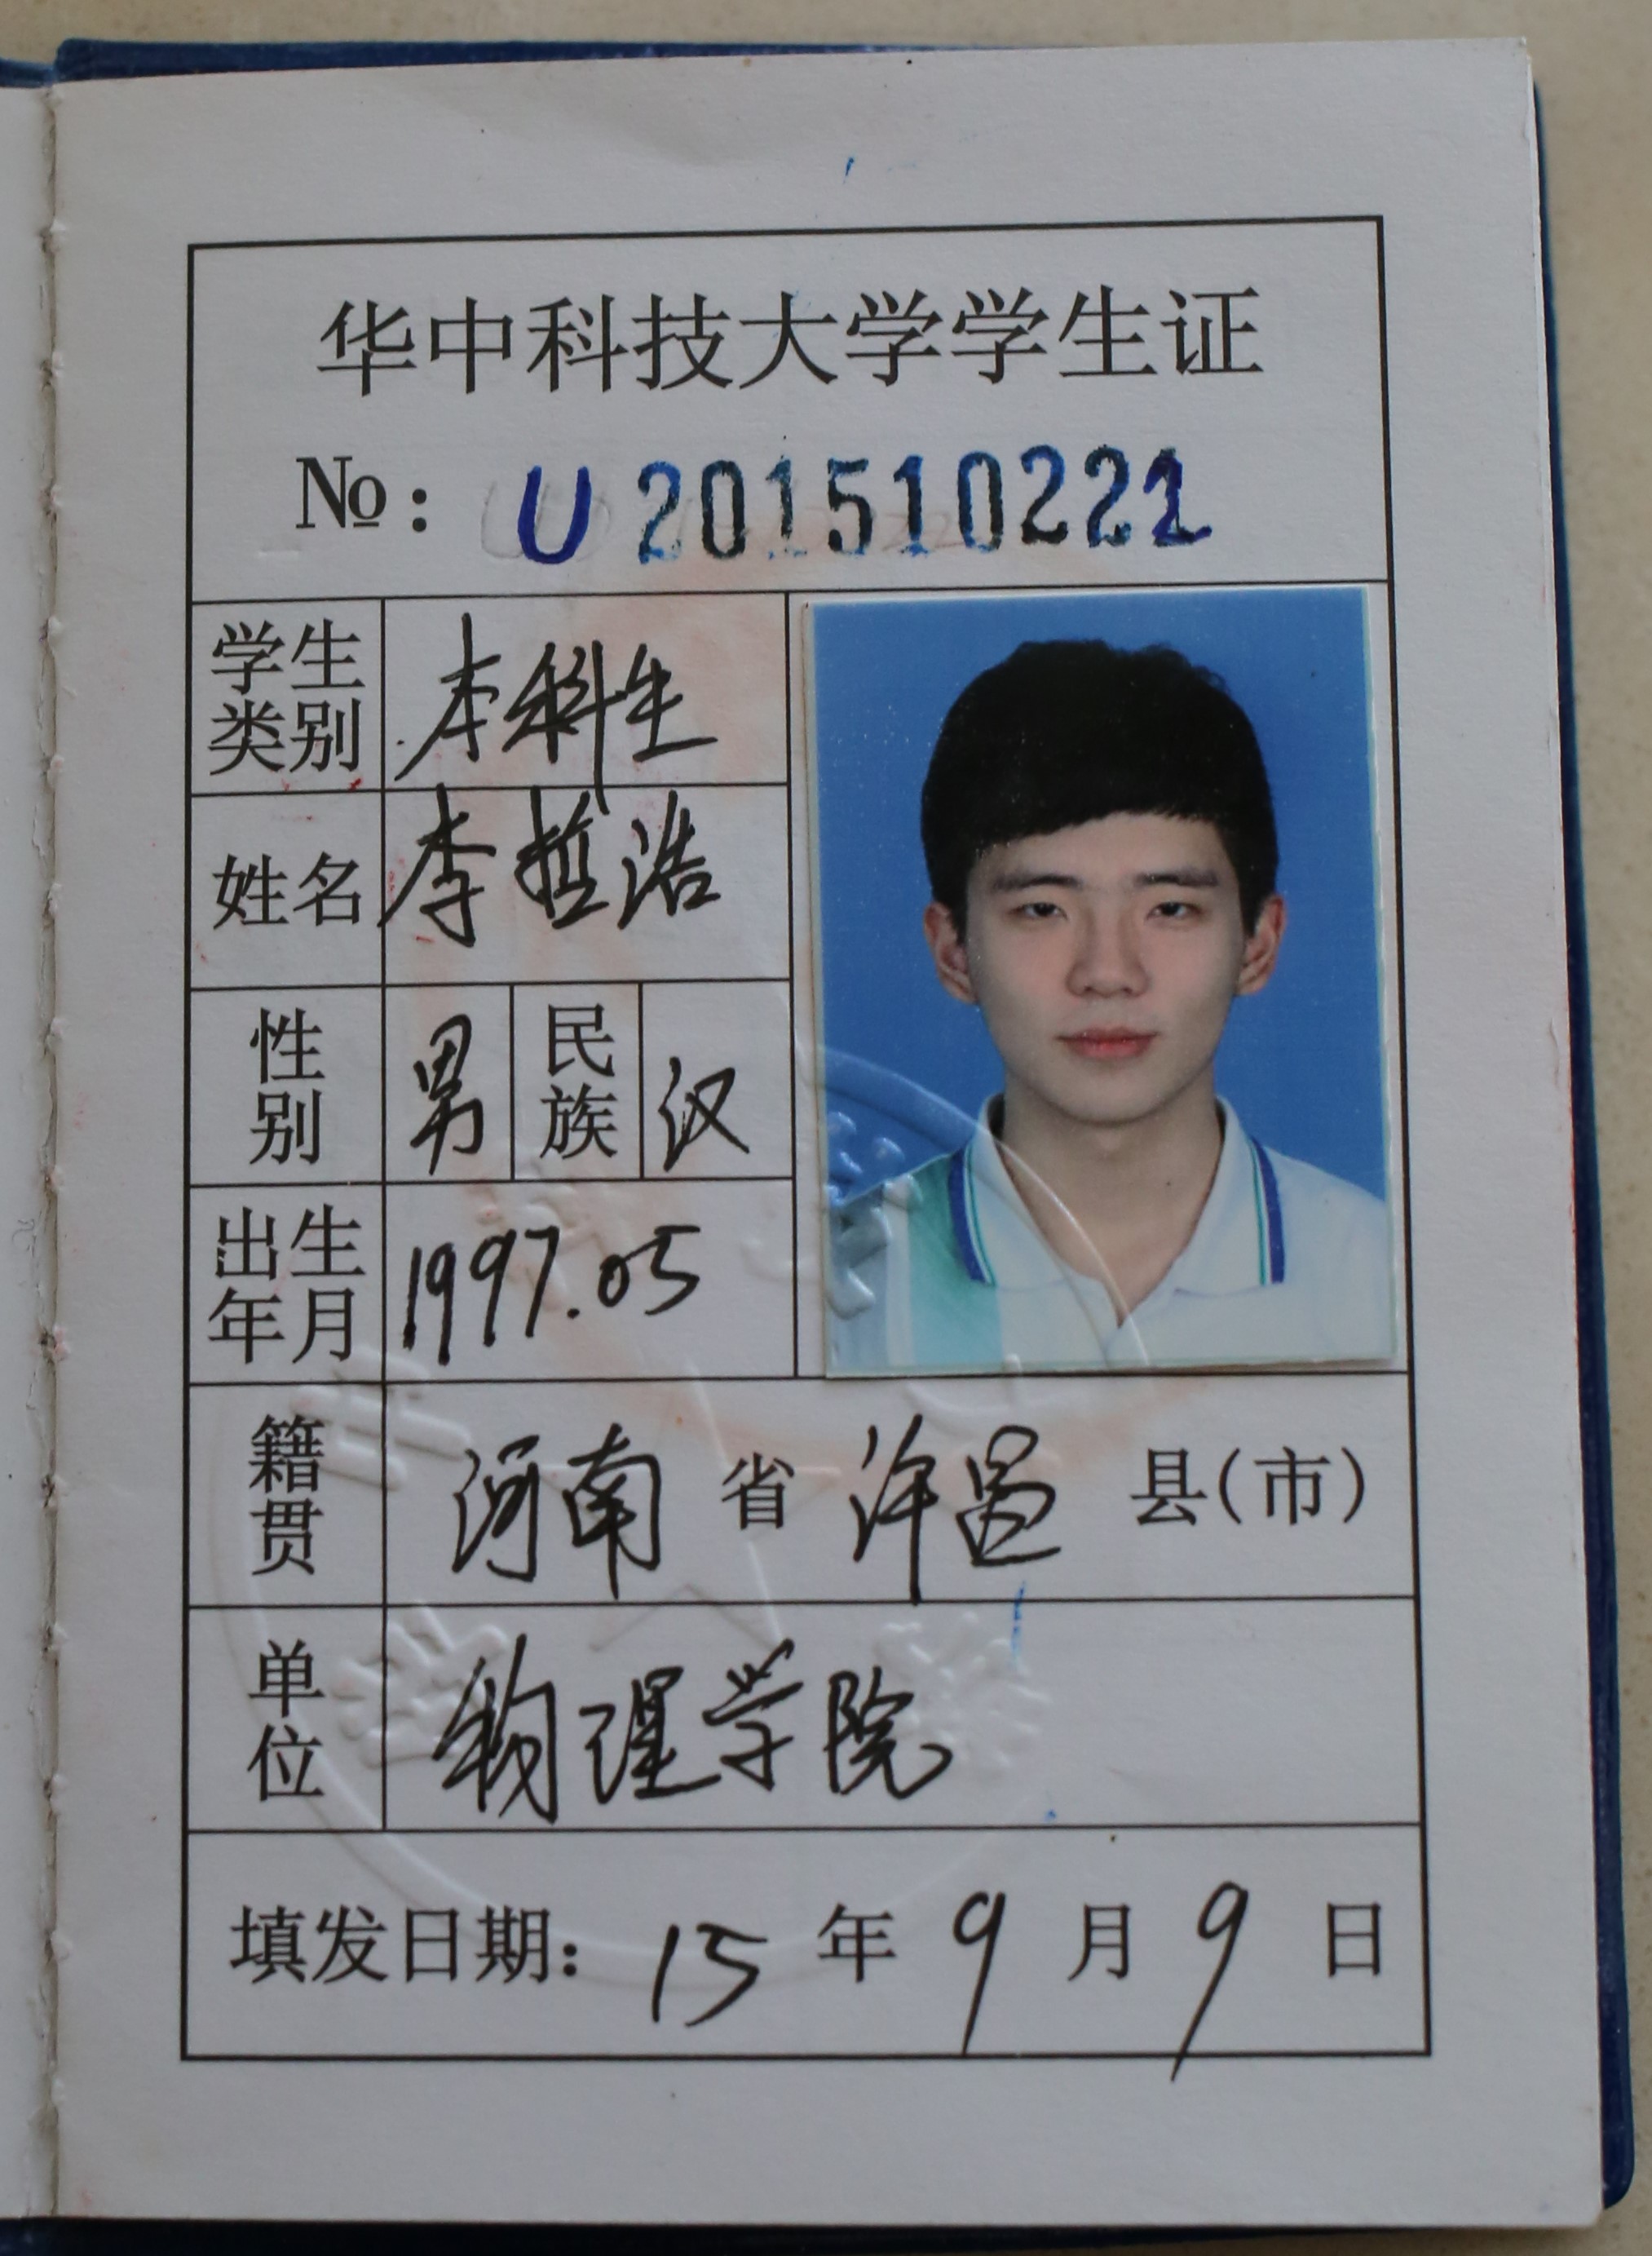 华中科技大学学生证
№: U201510221
学生类别 本科生
姓名 李哲浩
性别 男 民族 汉
出生年月 1997.05
籍贯 河南 省 许昌 县(市)
单位 物理学院
填发日期: 15 年 9 月 9 日